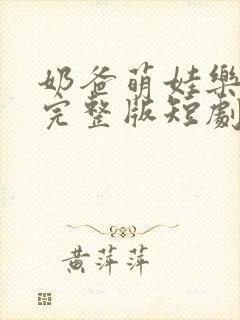 奶爸萌娃樂
完整版短劇
黃萍萍